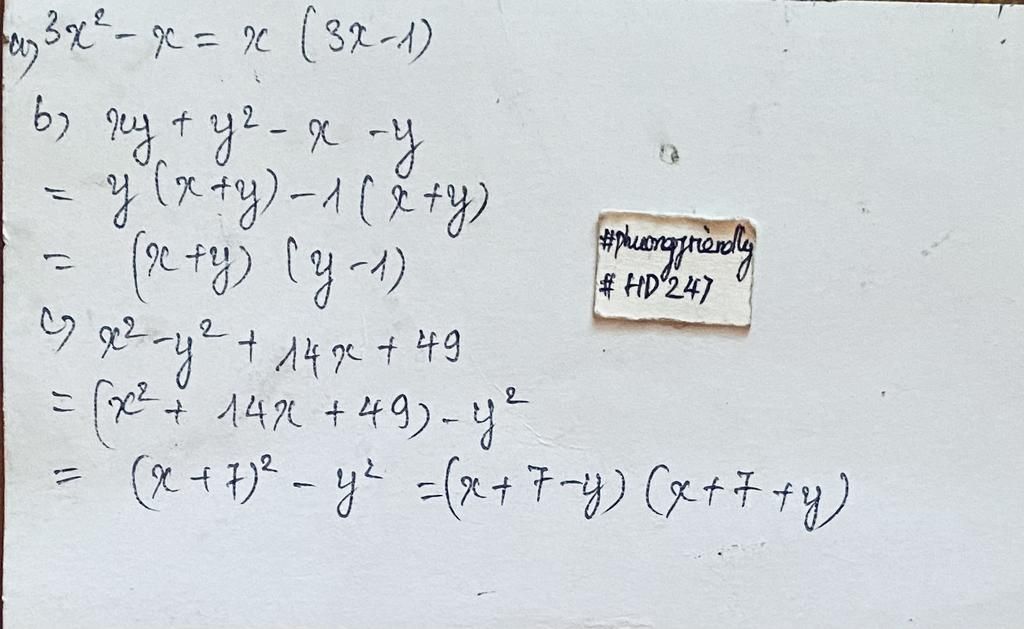 a) 3x² - x = x (3x-1)
b) xy + y² - x - y
= y (x+y) - 1 (x+y)
= (x+y) (y-1)
c) x² - y² + 14x + 49
= (x² + 14x + 49) - y²
= (x+7)² - y² = (x+7-y) (x+7+y)
#phuongfriendly
# HD247